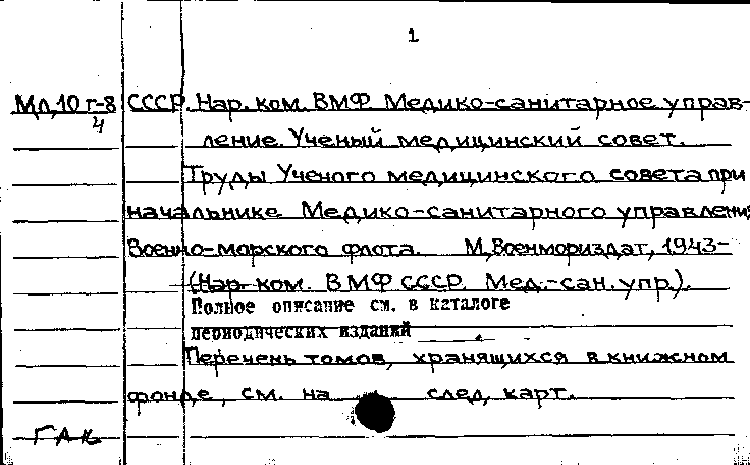 1
Мл,10 г-8 СССР. Нар. ком. ВМФ Медико-санитарное управ-
4
ление. Ученый медицинский совет.
Труды Ученого медицинского совета при
начальнике Медико-санитарного управления
Военно-морского флота. М., Военмориздат, 1943-
(Нар. ком. ВМФ СССР. Мед.-сан. упр.).
Полное описание см. в каталоге
периодических изданий
Перечень томов, хранящихся в книжном
фонде, см. на след. карт.